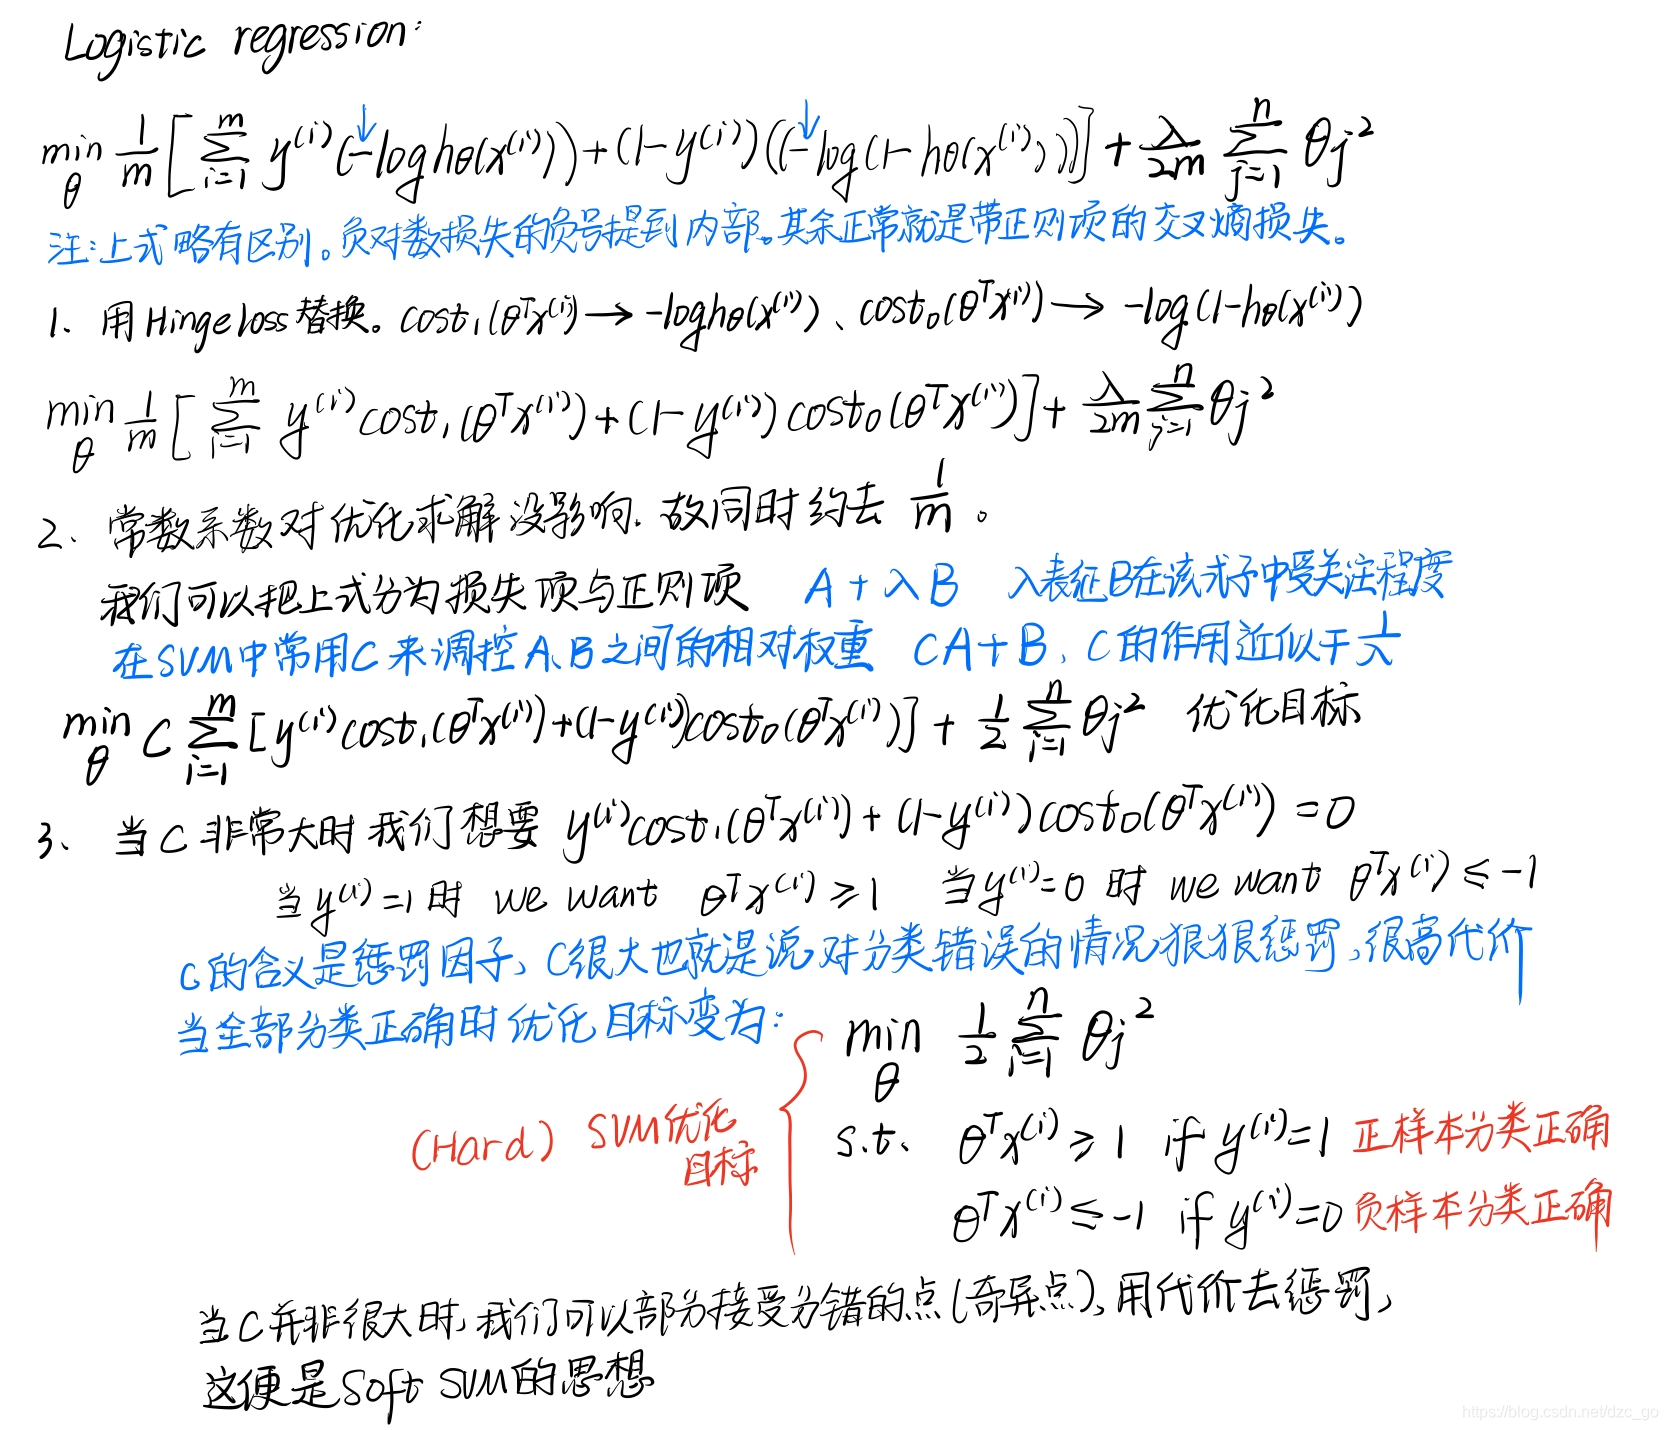 Logistic regression:
min_θ 1/m [ ∑_{i=1}^{m} y^{(i)} (-log h_θ(x^{(i)})) + (1-y^{(i)}) ((-log(1-h_θ(x^{(i)}))) ] + λ/2m ∑_{j=1}^{n} θ_j^2
注:上式略有区别。负对数损失的负号提到内部。其余正常就是带正则项的交叉熵损失。
1、用Hinge loss替换。cost_1(θ^T x^{(i)}) → -log h_θ(x^{(i)})、cost_0(θ^T x^{(i)}) → -log(1-h_θ(x^{(i)}))
min_θ 1/m [ ∑_{i=1}^{m} y^{(i)} cost_1(θ^T x^{(i)}) + (1-y^{(i)}) cost_0(θ^T x^{(i)}) ] + λ/2m ∑_{j=1}^{n} θ_j^2
2、常数系数对优化求解没影响.故同时约去 1/m 。
我们可以把上式分为损失项与正则项 A+λB λ表征B在该式子中受关注程度
在SVM中常用C来调控A、B之间的相对权重 CA+B,C的作用近似于 1/λ
min_θ C ∑_{i=1}^{m} [ y^{(i)} cost_1(θ^T x^{(i)}) + (1-y^{(i)}) cost_0(θ^T x^{(i)}) ] + 1/2 ∑_{i=1}^{n} θ_j^2 优化目标
3、当C非常大时我们想要 y^{(i)} cost_1(θ^T x^{(i)}) + (1-y^{(i)}) cost_0(θ^T x^{(i)}) = 0
当y^{(i)}=1时 we want θ^T x^{(i)} ≥ 1 当y^{(i)}=0时 we want θ^T x^{(i)} ≤ -1
C的含义是惩罚因子,C很大也就是说对分类错误的情况狠狠惩罚,很高代价
当全部分类正确时优化目标变为:
min_θ 1/2 ∑_{i=1}^{n} θ_j^2
(Hard) SVM优化目标
s.t. θ^T x^{(i)} ≥ 1 if y^{(i)}=1 正样本分类正确
θ^T x^{(i)} ≤ -1 if y^{(i)}=0 负样本分类正确
当C并非很大时,我们可以部分接受分错的点(奇异点),用代价去惩罚,
这便是Soft SVM的思想
https://blog.csdn.net/dzc_go